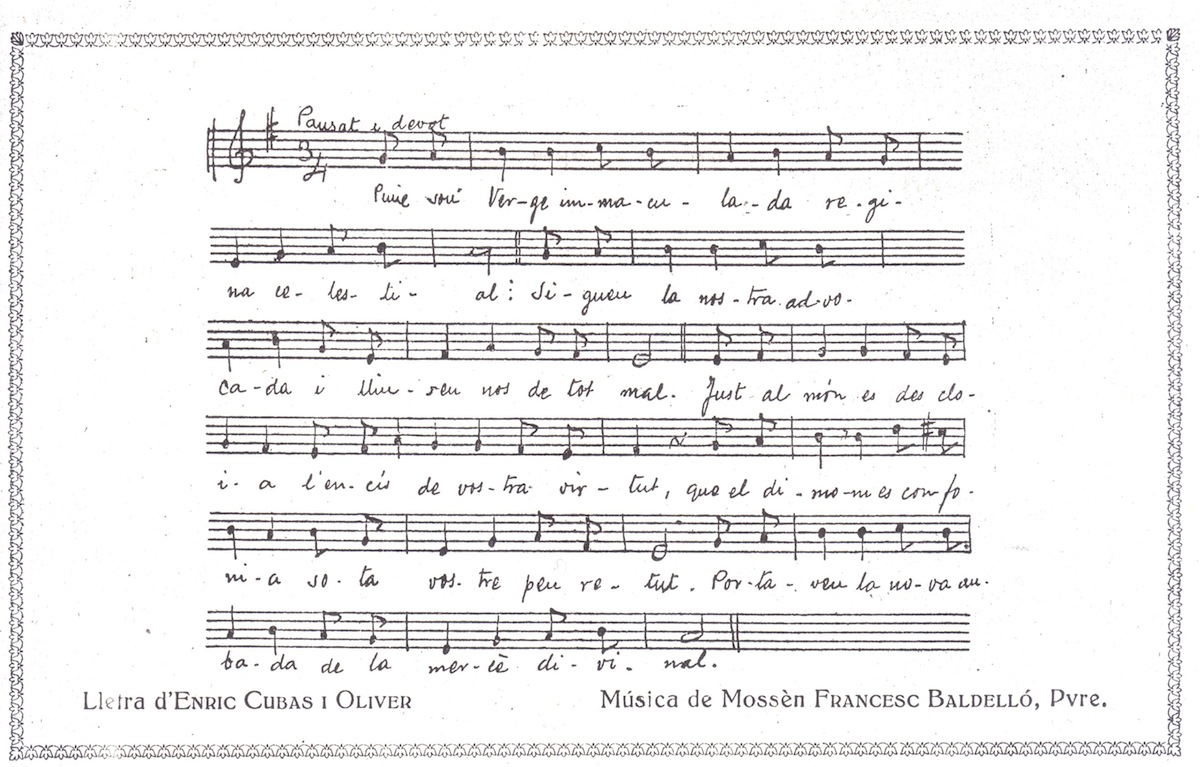 Pausat i devot
3/4
Puix sou Ver-ge im-ma-cu - la-da re-gi-
na ce-les-ti- al: Si-gueu la nos-tra ad-vo-
ca-da i lliu-reu nos de tot mal. Just al món es des clo-
i-a l'en-cís de vos-tra vir-tut, que el di-mo-ni es con-fo-
ni-a so-ta vos-tre peu re-tut. Por-ta-veu la no-va au-
ba-da de la mer-cè di-vi-nal.
Lletra d'ENRIC CUBAS I OLIVER
Música de Mossèn FRANCESC BALDELLÓ, Pvre.